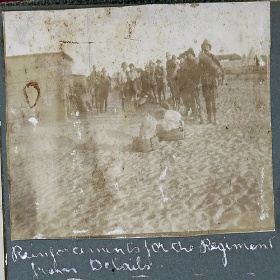 Reinforcements for the Regiment
from Details